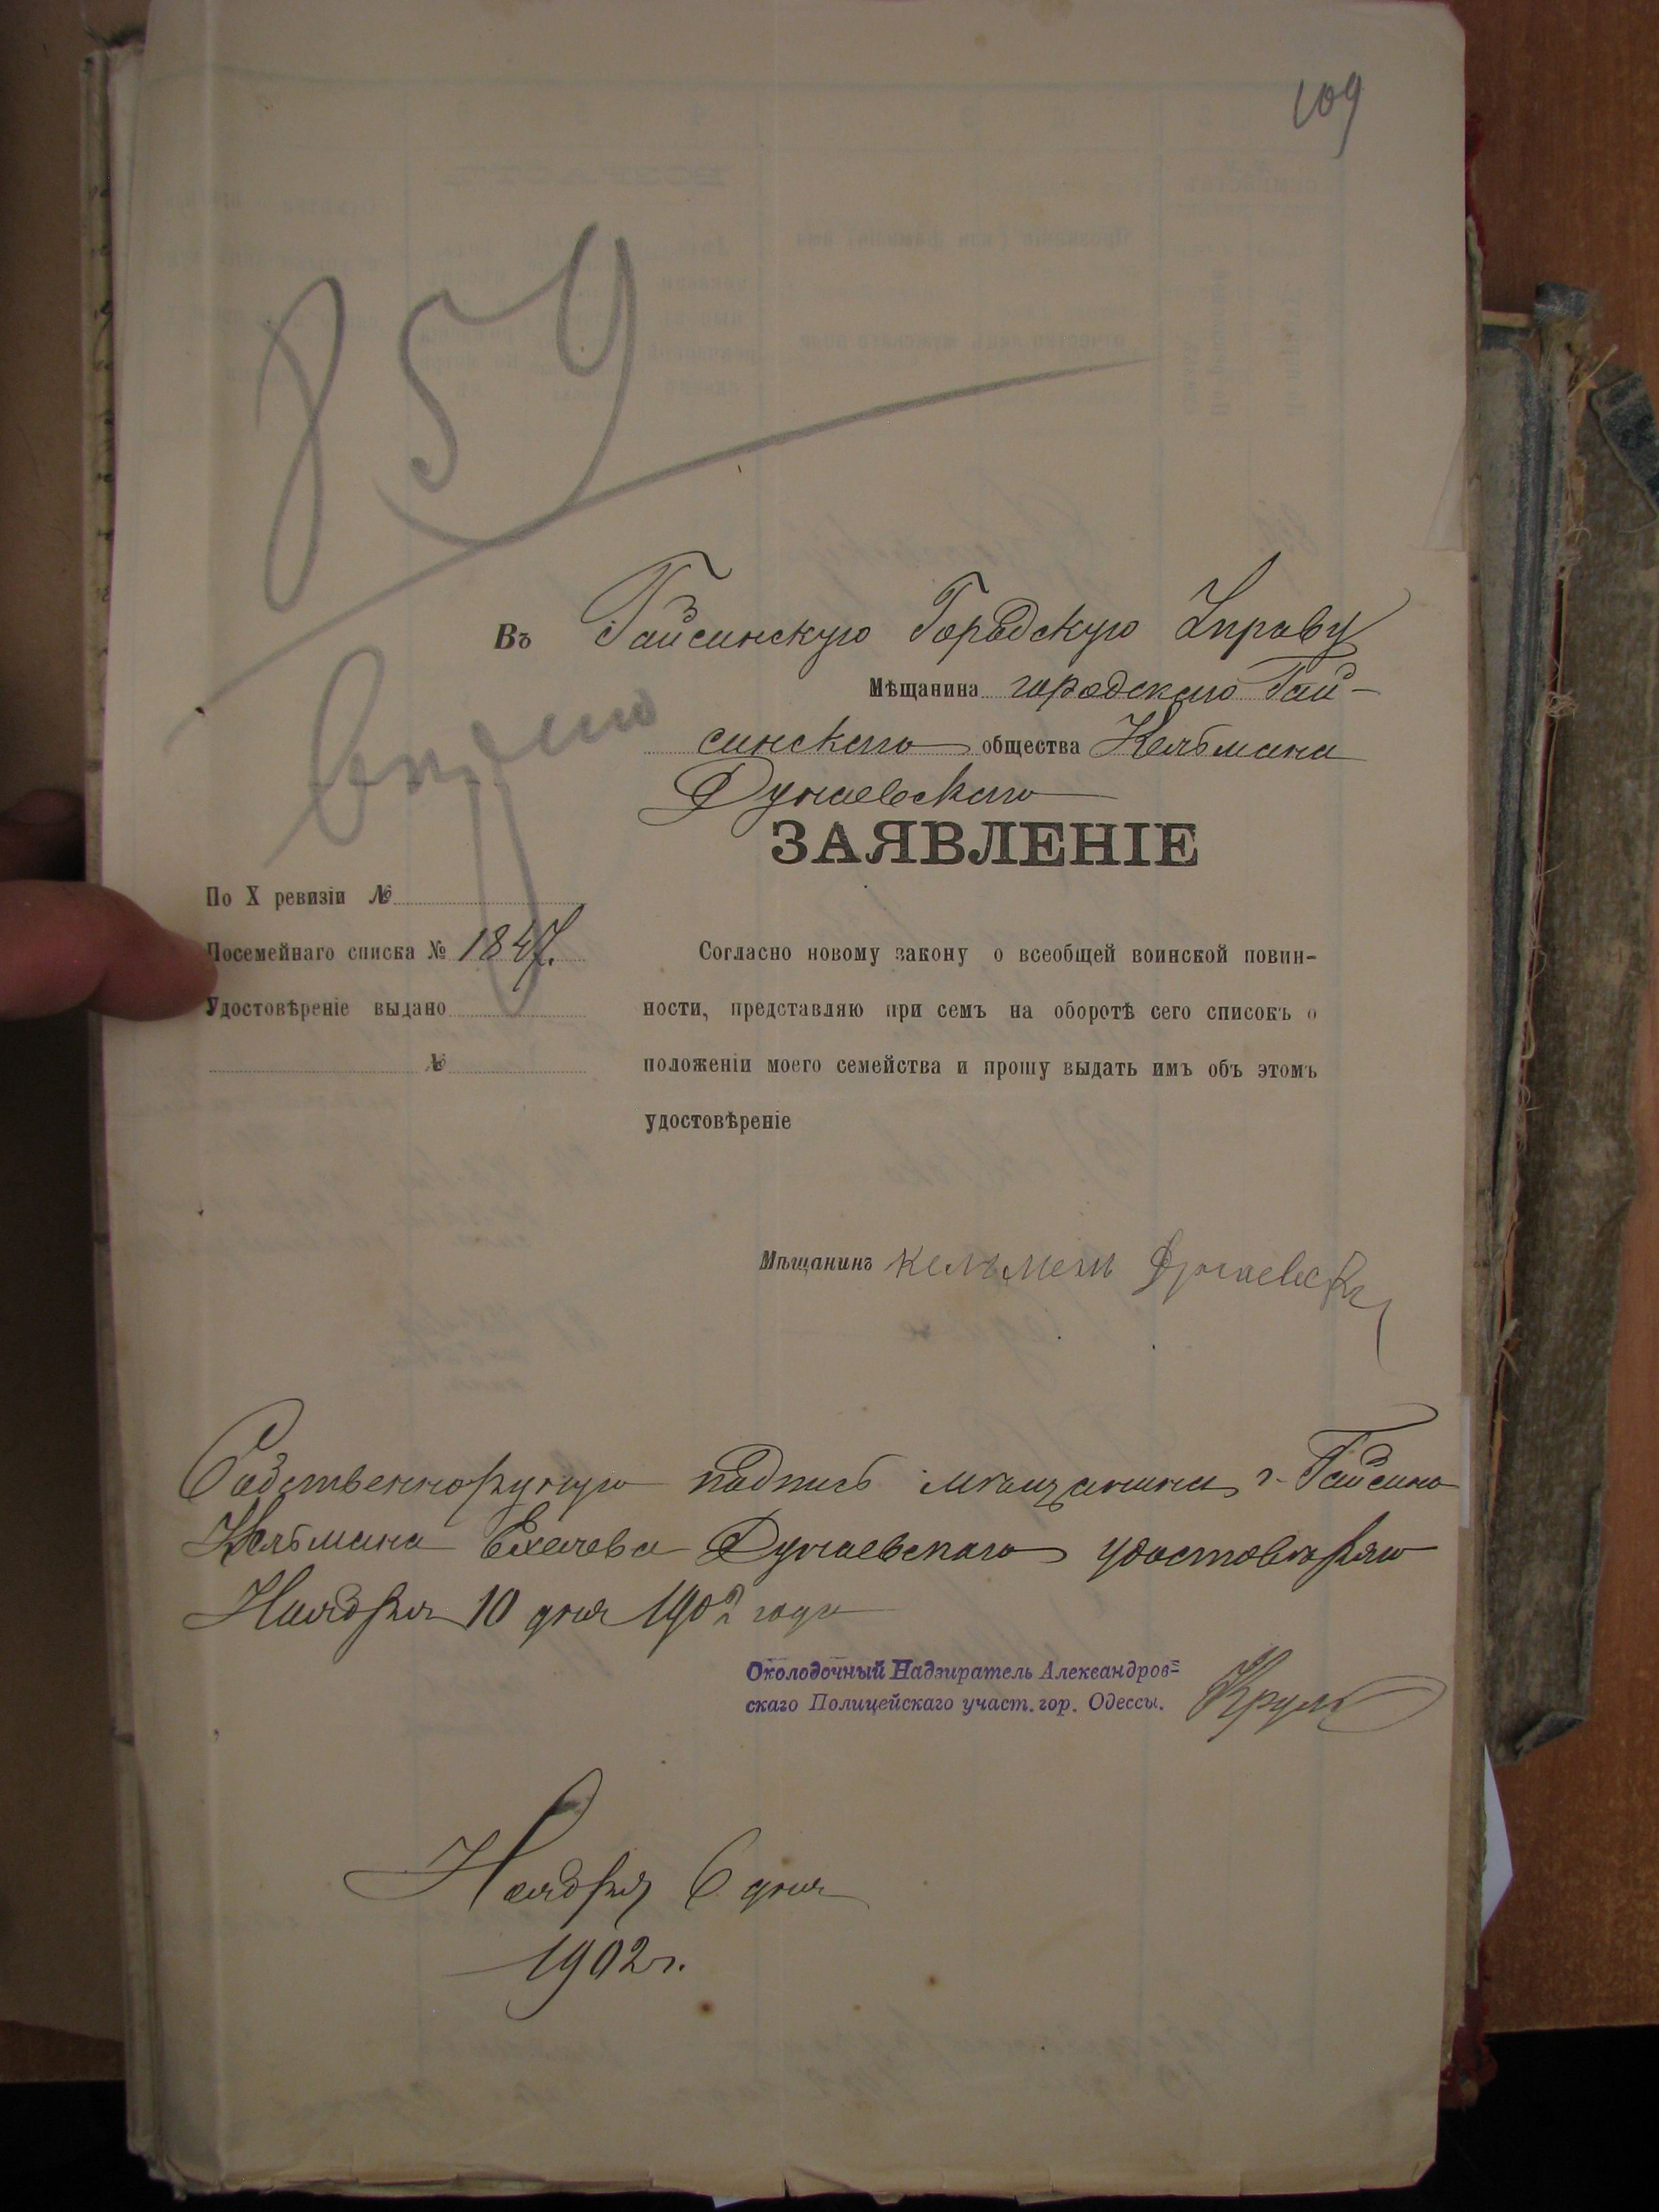 109
859
Въ Гайсинскую Городскую Управу
Мѣщанина городского Гай-
синскаго общества Кельмана
Дунаевскаго
ЗАЯВЛЕНІЕ
По X ревизіи №
Посемейнаго списка № 1847.
Удостовѣреніе выдано
№
Согласно новому закону о всеобщей воинской повин-
ности, представляю при семъ на оборотѣ сего списокъ о
положеніи моего семейства и прошу выдать имъ объ этомъ
удостовѣреніе
Мѣщанинъ Кельмен Дунаевск
Собственноручную подпись мѣщанина г. Гайсина
Кельмана Дунаевскаго удостовѣряю
Ноября 10 дня 1902 года
Околодочный Надзиратель Александров=
скаго Полицейскаго участ. гор. Одессы.
Ноября 6 дня
1902 г.